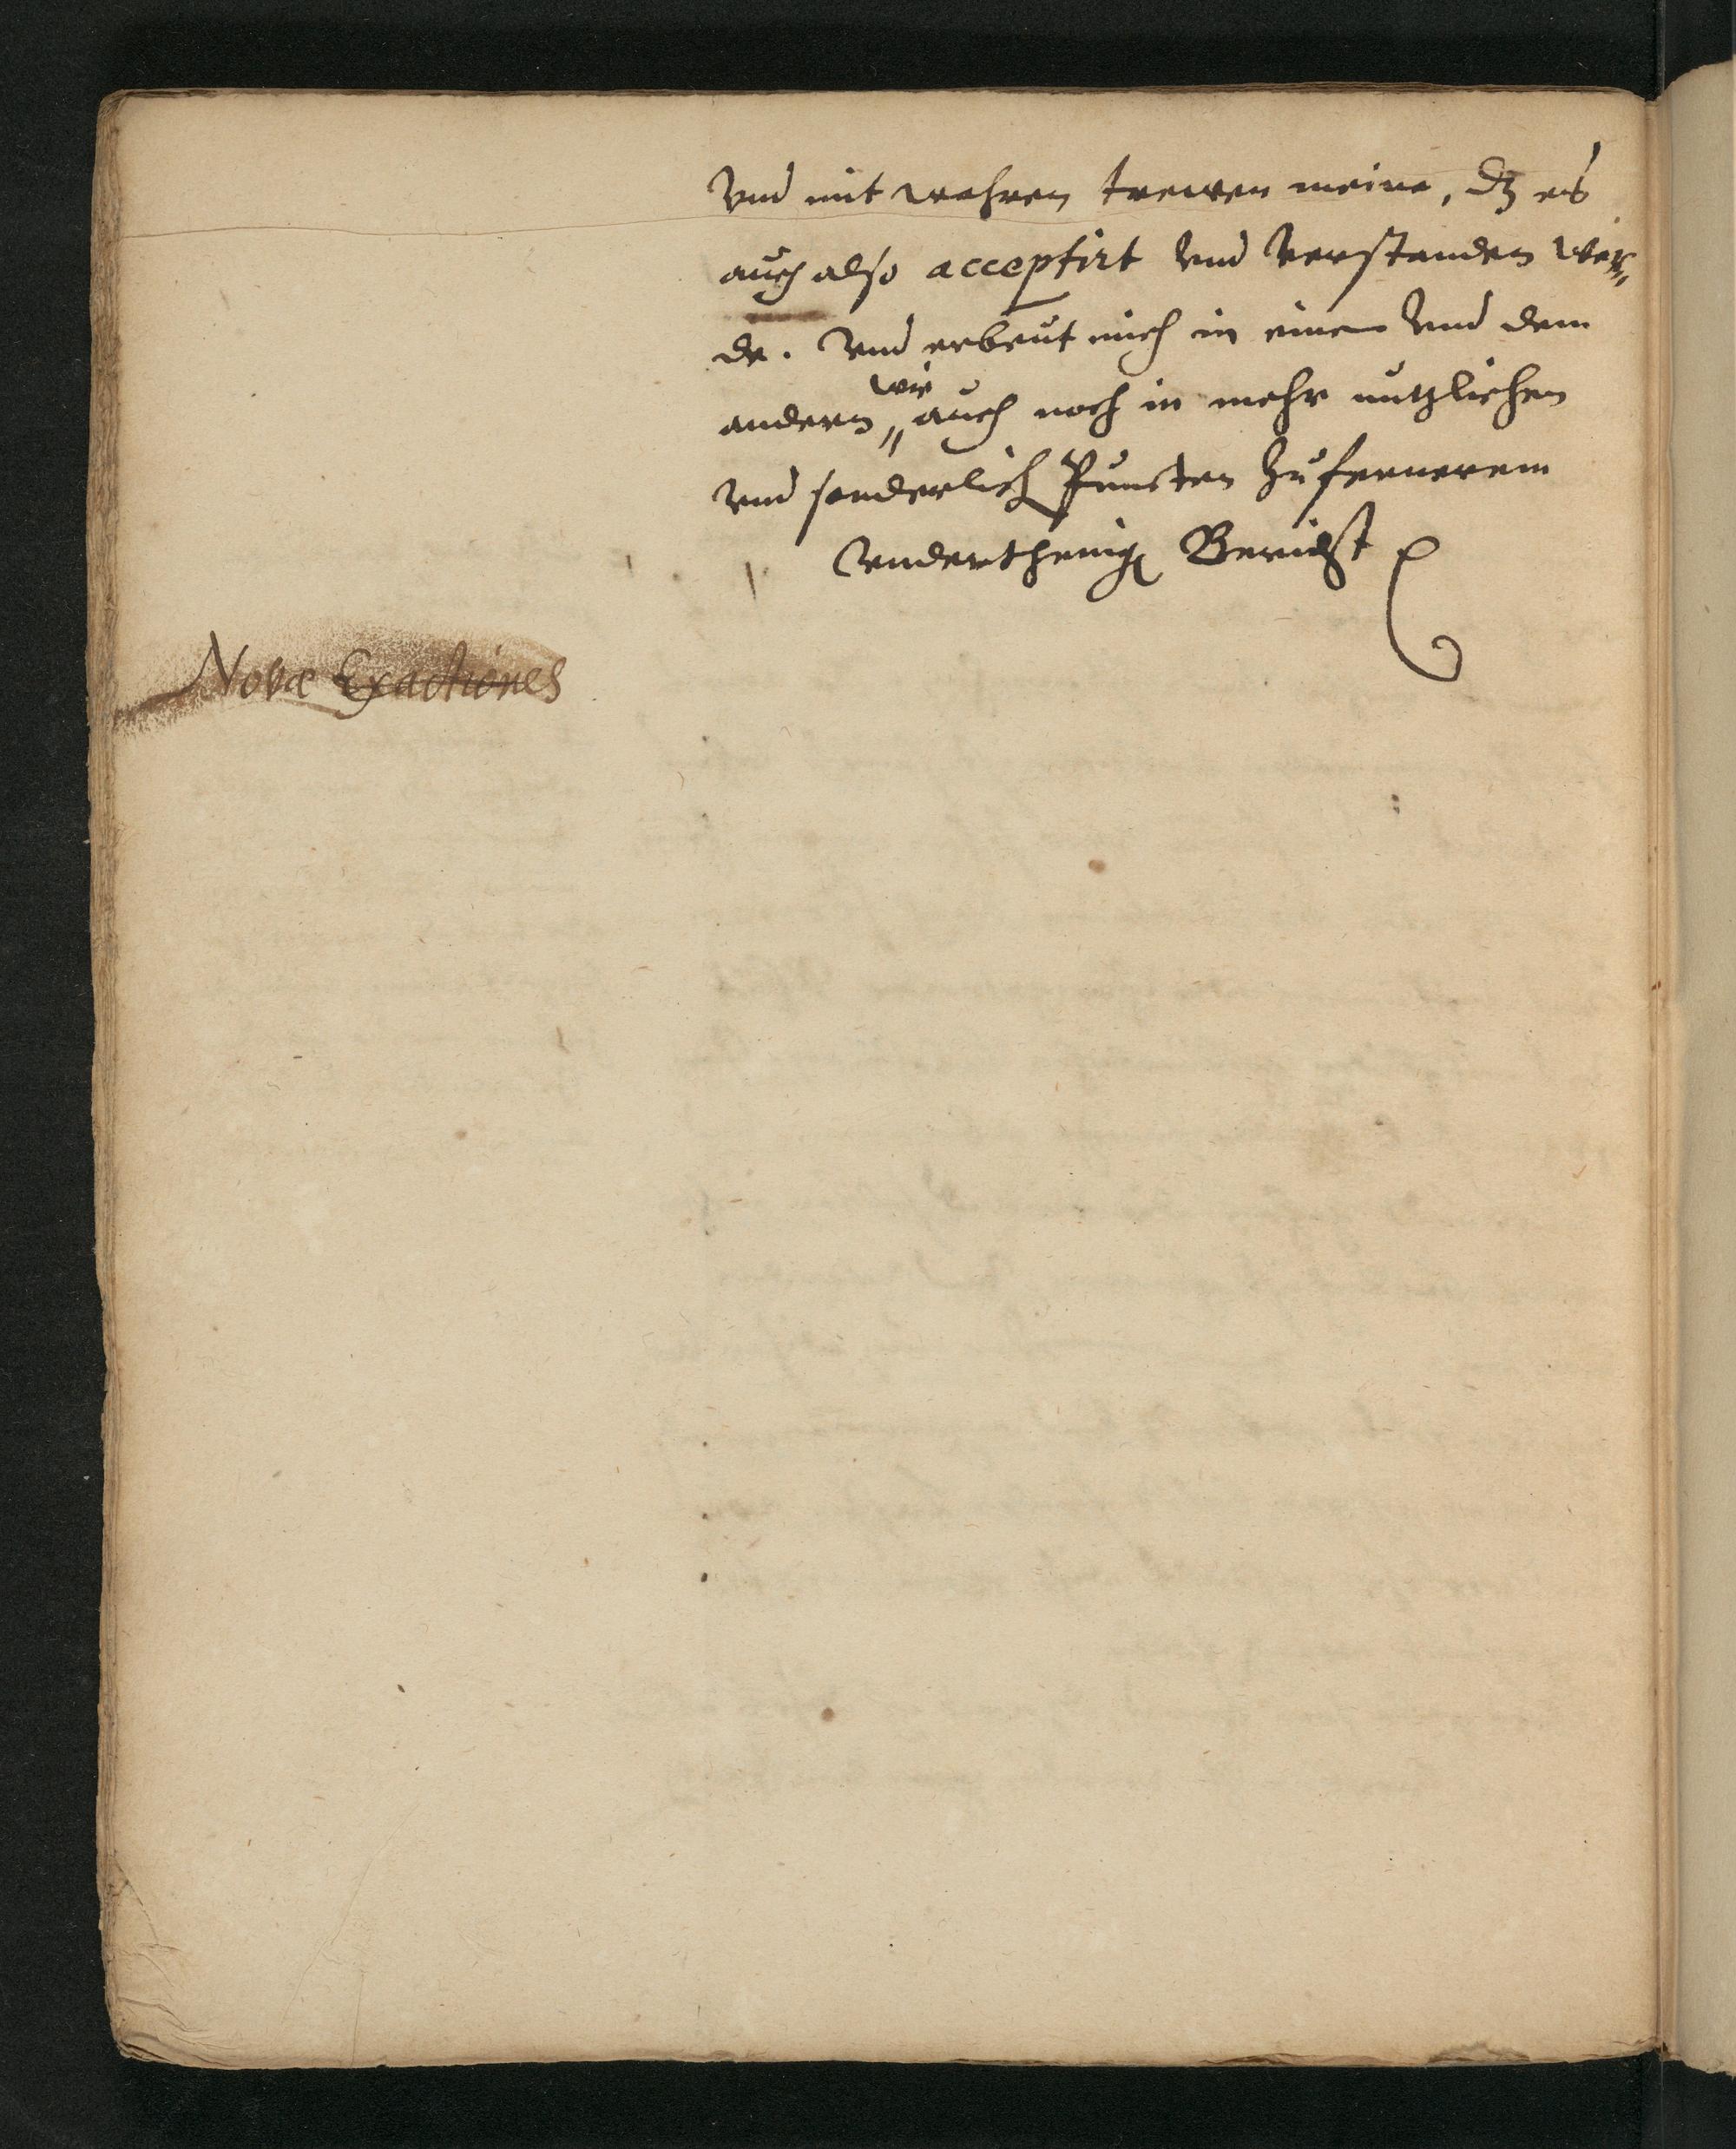 Vnd mit wahren trewen meine, dz es
auch also acceptirt vnd verstanden wer„
de. Vnd erbeut mich in einem vnd dem
andern „ wie auch noch in mehr nutzlichen
vnd sonderlich Puncten zu fernerem
Vnderthenig Bericht
Novæ Exactiones